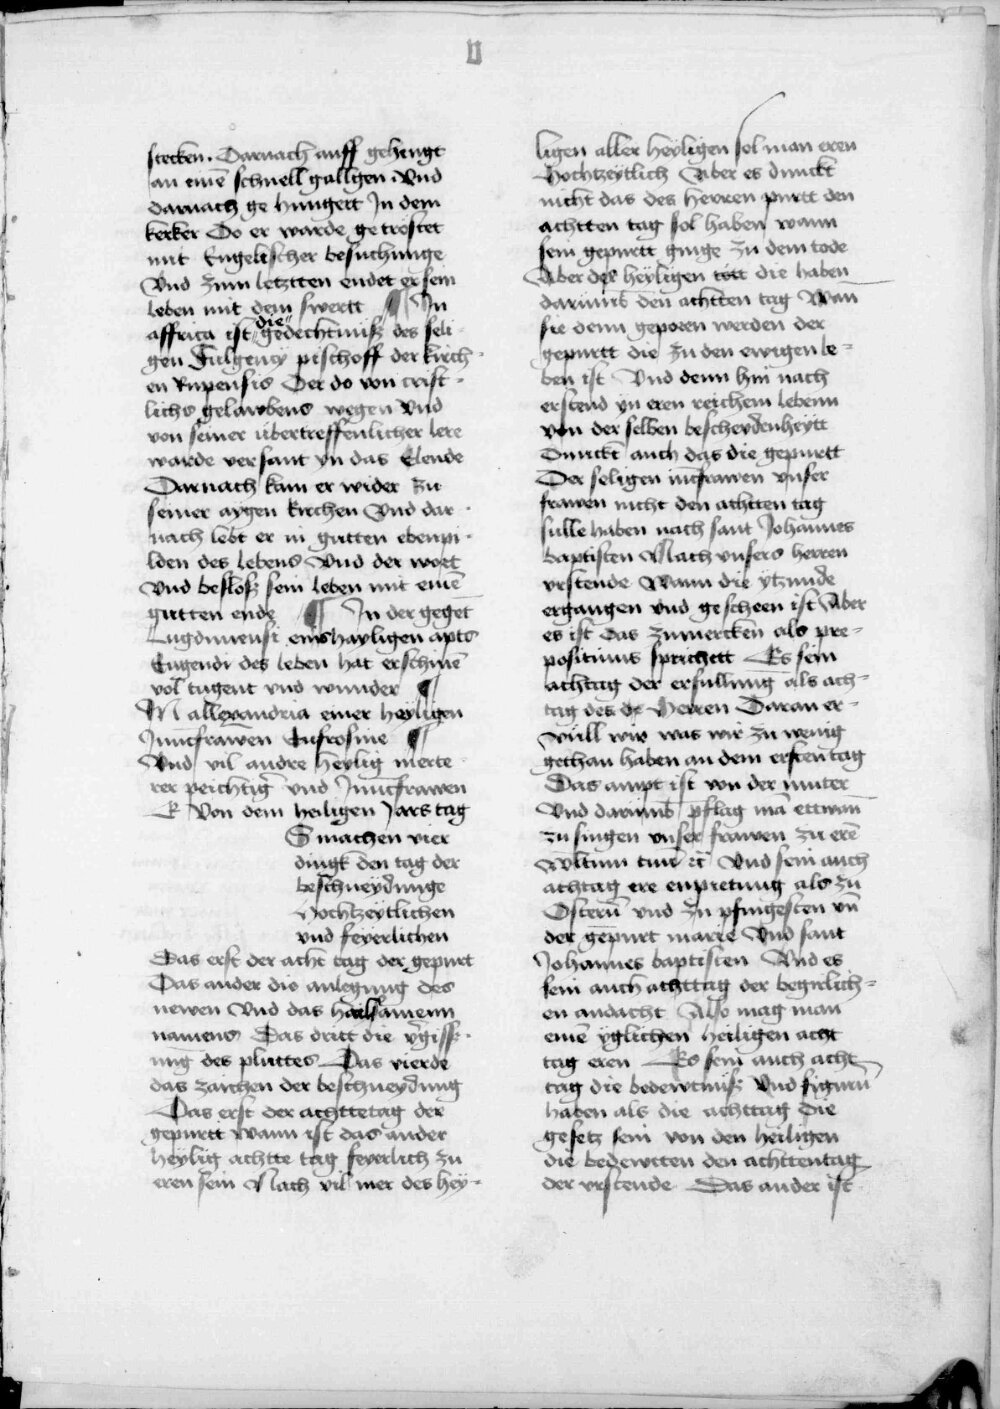 II
stecken. Darnach auff gehengt
an einē schnell gallgen. Vnd
darnach ge hungert Jn dem
kerker Do er warde getröstet
mit Engelischer besuchunge
Vnd zum letztten endet er sein
leben mit dem swertt ¶ Jn
affrica ist die gedechtniß des seli-
gen Fulgency pischoff der kirch-
en Rupensis Der do von crist-
lichs gelawbens wegen Vnd
von seiner übertreffenlicher lere
warde versant yn das Elende
Darnach kam er wider zu
seiner aygen kirchen Vnd dar-
nach lebt er in gutten ebenpi-
lden des lebens Vnd der wort
Vnd besloß sein leben mit einē
gutten ende ¶ Jn der geget
Lugdunensi eins hayligen apts
Eugendi des leben hat erschinē
vol tugent vnd wunder ¶
M allexandria einer heyligen
Junckfrawen Eufrosine ¶
Vnd vil andre heylig merte-
rer peichtig̃ vnd Junckfrawen
Von dem heiligen Jars tag
S machen vier
dingk den tag der
beschneydunge
Hochtzeytlichen
vnd feyerlichen
Das erst der acht tag der gepurt
Das ander die anlegung des
newen Vnd das hailsamenn
namens Das dritt die v̓gisß-
ung des pluttes Das vierde
das zaichen der beschneydung
Das erst der achttetag der
gepurtt Wann ist das ander
heylig achtte tag feyerlich zu
eren sein Nach vil mer des hey-
ligen aller heyligen sol man eren
Hochtzeytlich Aber es dunckt
nicht das des herren purtt den
achtten tag sol haben wann
sein gepurtt ginge zu dem tode
Aber der heyligen tött die haben
darumb den achtten tag Wan̄
sie denn geporen werden der
gepurtt die zu den ewigen le-
ben ist Vnd denn hin nach
erstend yn eren reichem lebenn
von der selben bescheydenheytt
Dunckt auch das die gepurtt
Der seligen iuckfrawen vnser
frawen nicht den achtten tag
sulle haben nach sant Johannes
baptisten Nach vnsers herren
vrstende Wann die ytzunde
ergangen vnd gescheen ist Aber
es ist das zumercken als pre-
positiuus sprichett Es sein
achtag der erfullung als ach-
tag des de Herren Daran er-
vüll wir was wir zu wenig
gethan haben an dem ersten tag
Das ampt ist von der muter
Vnd darumb pflag mā ettwan̄
zu singen vnser frawen zu erē
Wltum tuū ꝛc̄ Vnd sein auch
achtag ere enpietung als zu
Ostern̄ vnd zu pfingesten vn̄
der gepurt marie Vnd sant
Johannes baptisten Vnd es
sein auch achttag der begirlich-
en andacht Also mag man
einē yglichen heiligen acht
tag eren Es sein auch acht
tag die bedewtniß Vnd figurn̄
haben als die achttag die
gesetz sein von den heiligen
die bedewtten den achttentag
der vrstende Das ander ist